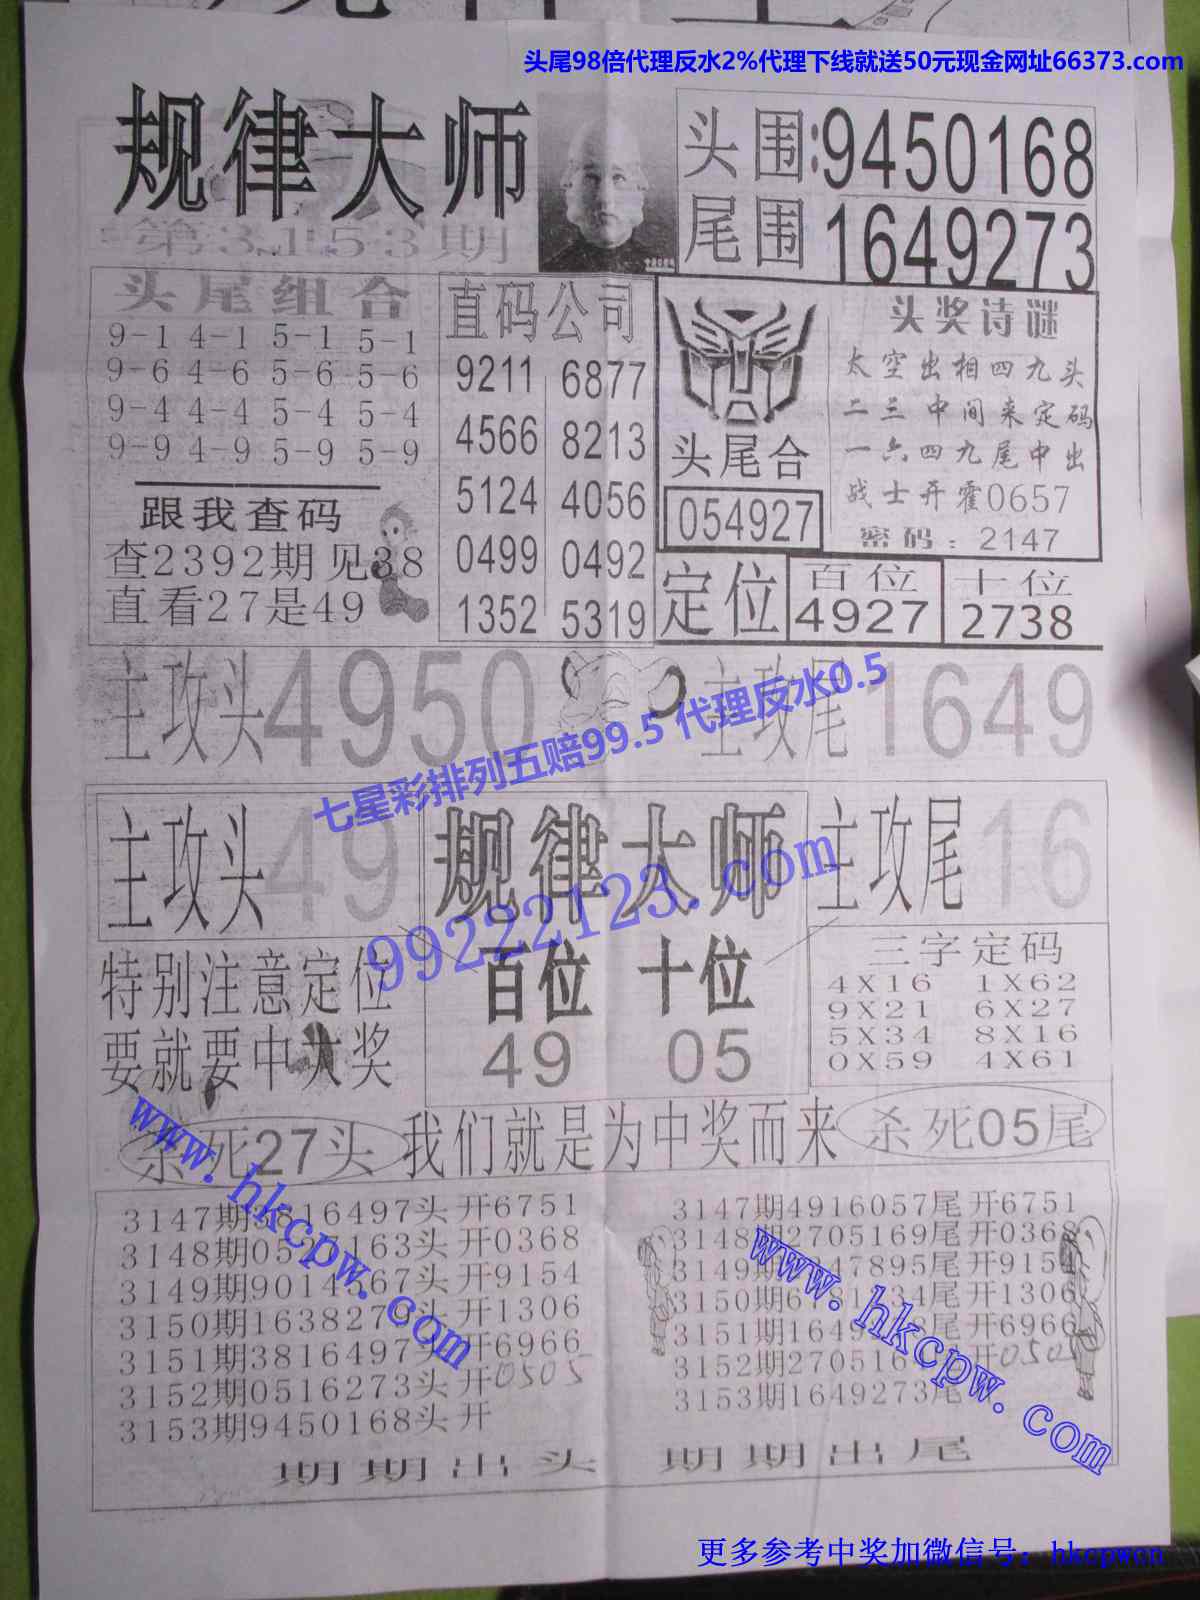 头尾98倍代理反水2%代理下线就送50元现金网址66373.com
规律大师
第3153期
头围:9450168
尾围 1649273
头尾组合
9-1 4-1 5-1 5-1
9-6 4-6 5-6 5-6
9-4 4-4 5-4 5-4
9-9 4-9 5-9 5-9
跟我查码
查2392期见38
直看27是49
直码公司
9211 6877
4566 8213
5124 4056
0499 0492
1352 5319
头尾合
054927
头奖诗谜
太空出相四九头
二三中间来定码
一六四九尾中出
战士开霍0657
密码:2147
定位
百位
4927
十位
2738
主攻头4950
主攻尾1649
七星彩排列五赔99.5 代理反水0.5
主攻头49
规律大师
主攻尾16
99222123.com
特别注意定位
要就要中大奖
百位 十位
49 05
三字定码
4X16 1X62
9X21 6X27
5X34 8X16
0X59 4X61
杀死27头
我们就是为中奖而来
杀死05尾
www.hkcpw.com
3147期3816497头开6751
3148期05 163头开0368
3149期9014567头开9154
3150期1638279头开1306
3151期3816497头开6966
3152期0516273头开0505
3153期9450168头开
3147期4916057尾开6751
3148期2705169尾开0368
3149期 47895尾开915
3150期6781 34尾开1306
3151期1649 尾开6966
3152期270516 开050
3153期1649273尾
www.hkcpw.com
期期出头 期期出尾
更多参考中奖加微信号:hkcpwcn